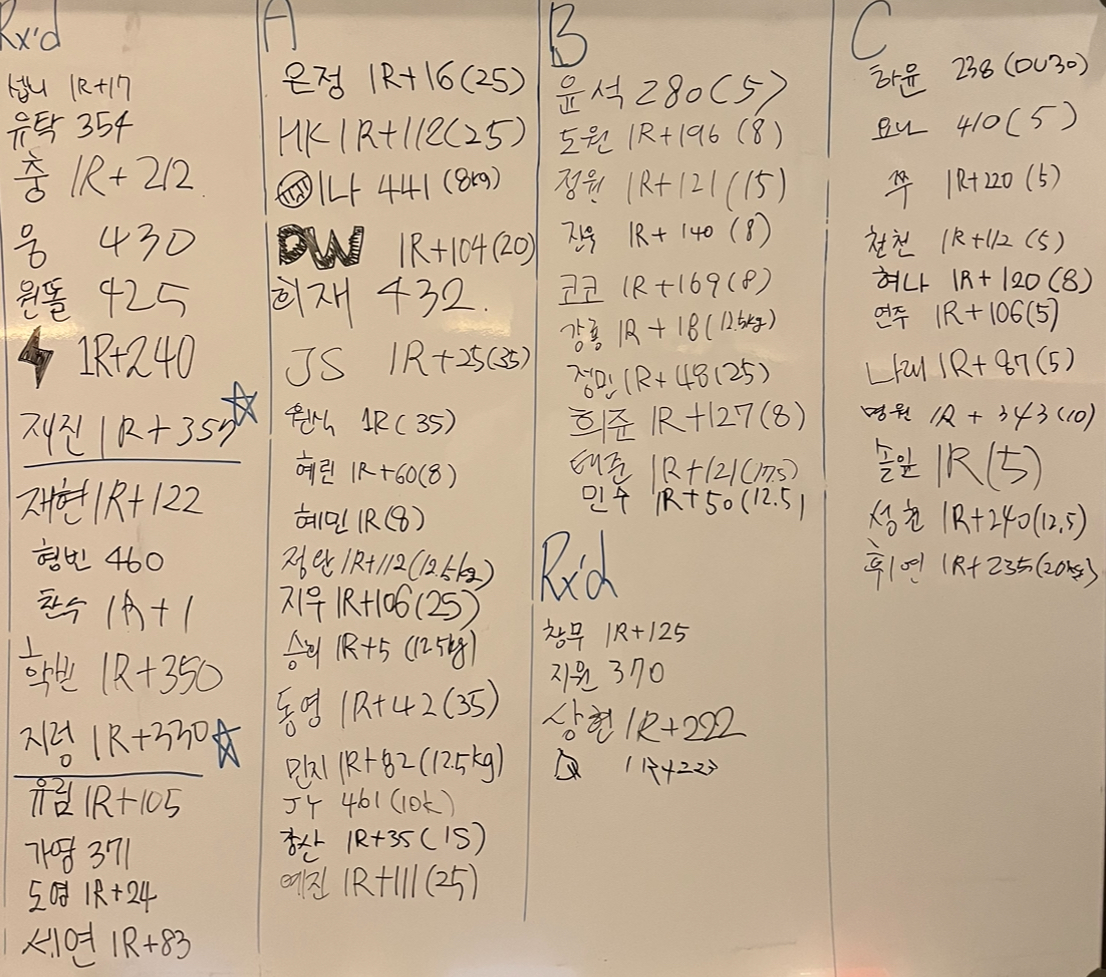 Rx'd
섭니 1R+17
유탁 354
충 1R+212
웅 430
원똘 425
1R+240
재진 1R+357
재현 1R+122
형빈 460
찬수 1R+1
학빈 1R+350
지령 1R+330
유림 1R+105
가영 371
도영 1R+24
세연 1R+83
A
은정 1R+16(25)
HK 1R+112(25)
나 441 (8kg)
DW 1R+104(20)
희재 432
JS 1R+25(35)
원식 1R(35)
혜린 1R+60(8)
혜민 1R(8)
정안 1R+112(12.5kg)
지우 1R+106(25)
승리 1R+5 (12.5kg)
동영 1R+42(35)
민지 1R+82(12.5kg)
JY 461(10k)
1R+35(15)
예진 1R+111(25)
B
윤석 280(5)
도원 1R+196 (8)
정원 1R+121(15)
1R+140 (8)
코코 1R+169(8)
강룡 1R+18(12.5kg)
정민 1R+48(25)
희준 1R+127(8)
태준 1R+121(17.5)
민수 1R+50(12.5)
Rx'd
창무 1R+125
지원 370
상현 1R+222
1R+223
C
하윤 238(DU30)
요나 410(5)
쭈 1R+220 (5)
천천 1R+112 (5)
혀나 1R+120(8)
연주 1R+106(5)
나래 1R+87(5)
명원 1R+343(10)
솔잎 1R(5)
성현 1R+240(12.5)
휘연 1R+235(20kg)